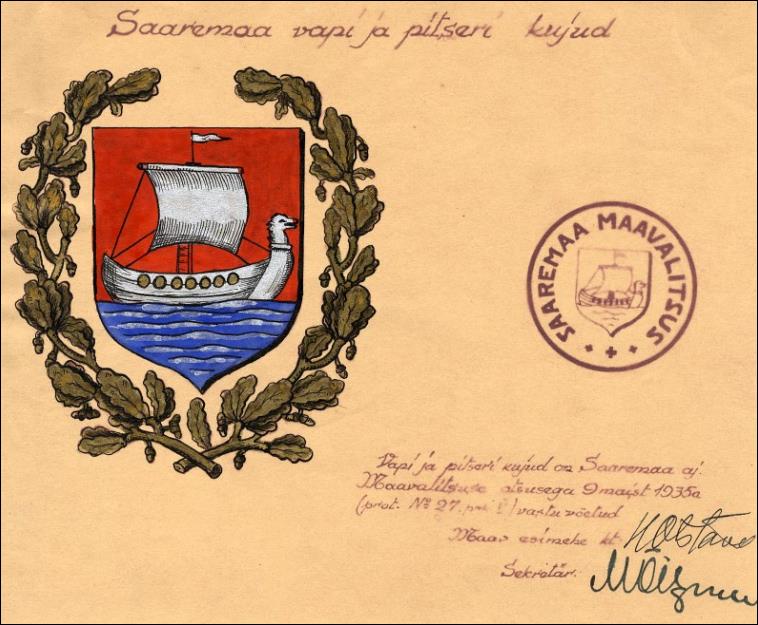 Saaremaa vapi ja pitseri kujud
SAAREMAA MAAVALITSUS
Vapi ja pitseri kujud on Saaremaa aj.
Maavalitsuse otsusega 9 maist 1935a
(prot. № 27. ) vastu võetud
Maav esimehe kt.
Sekretär: